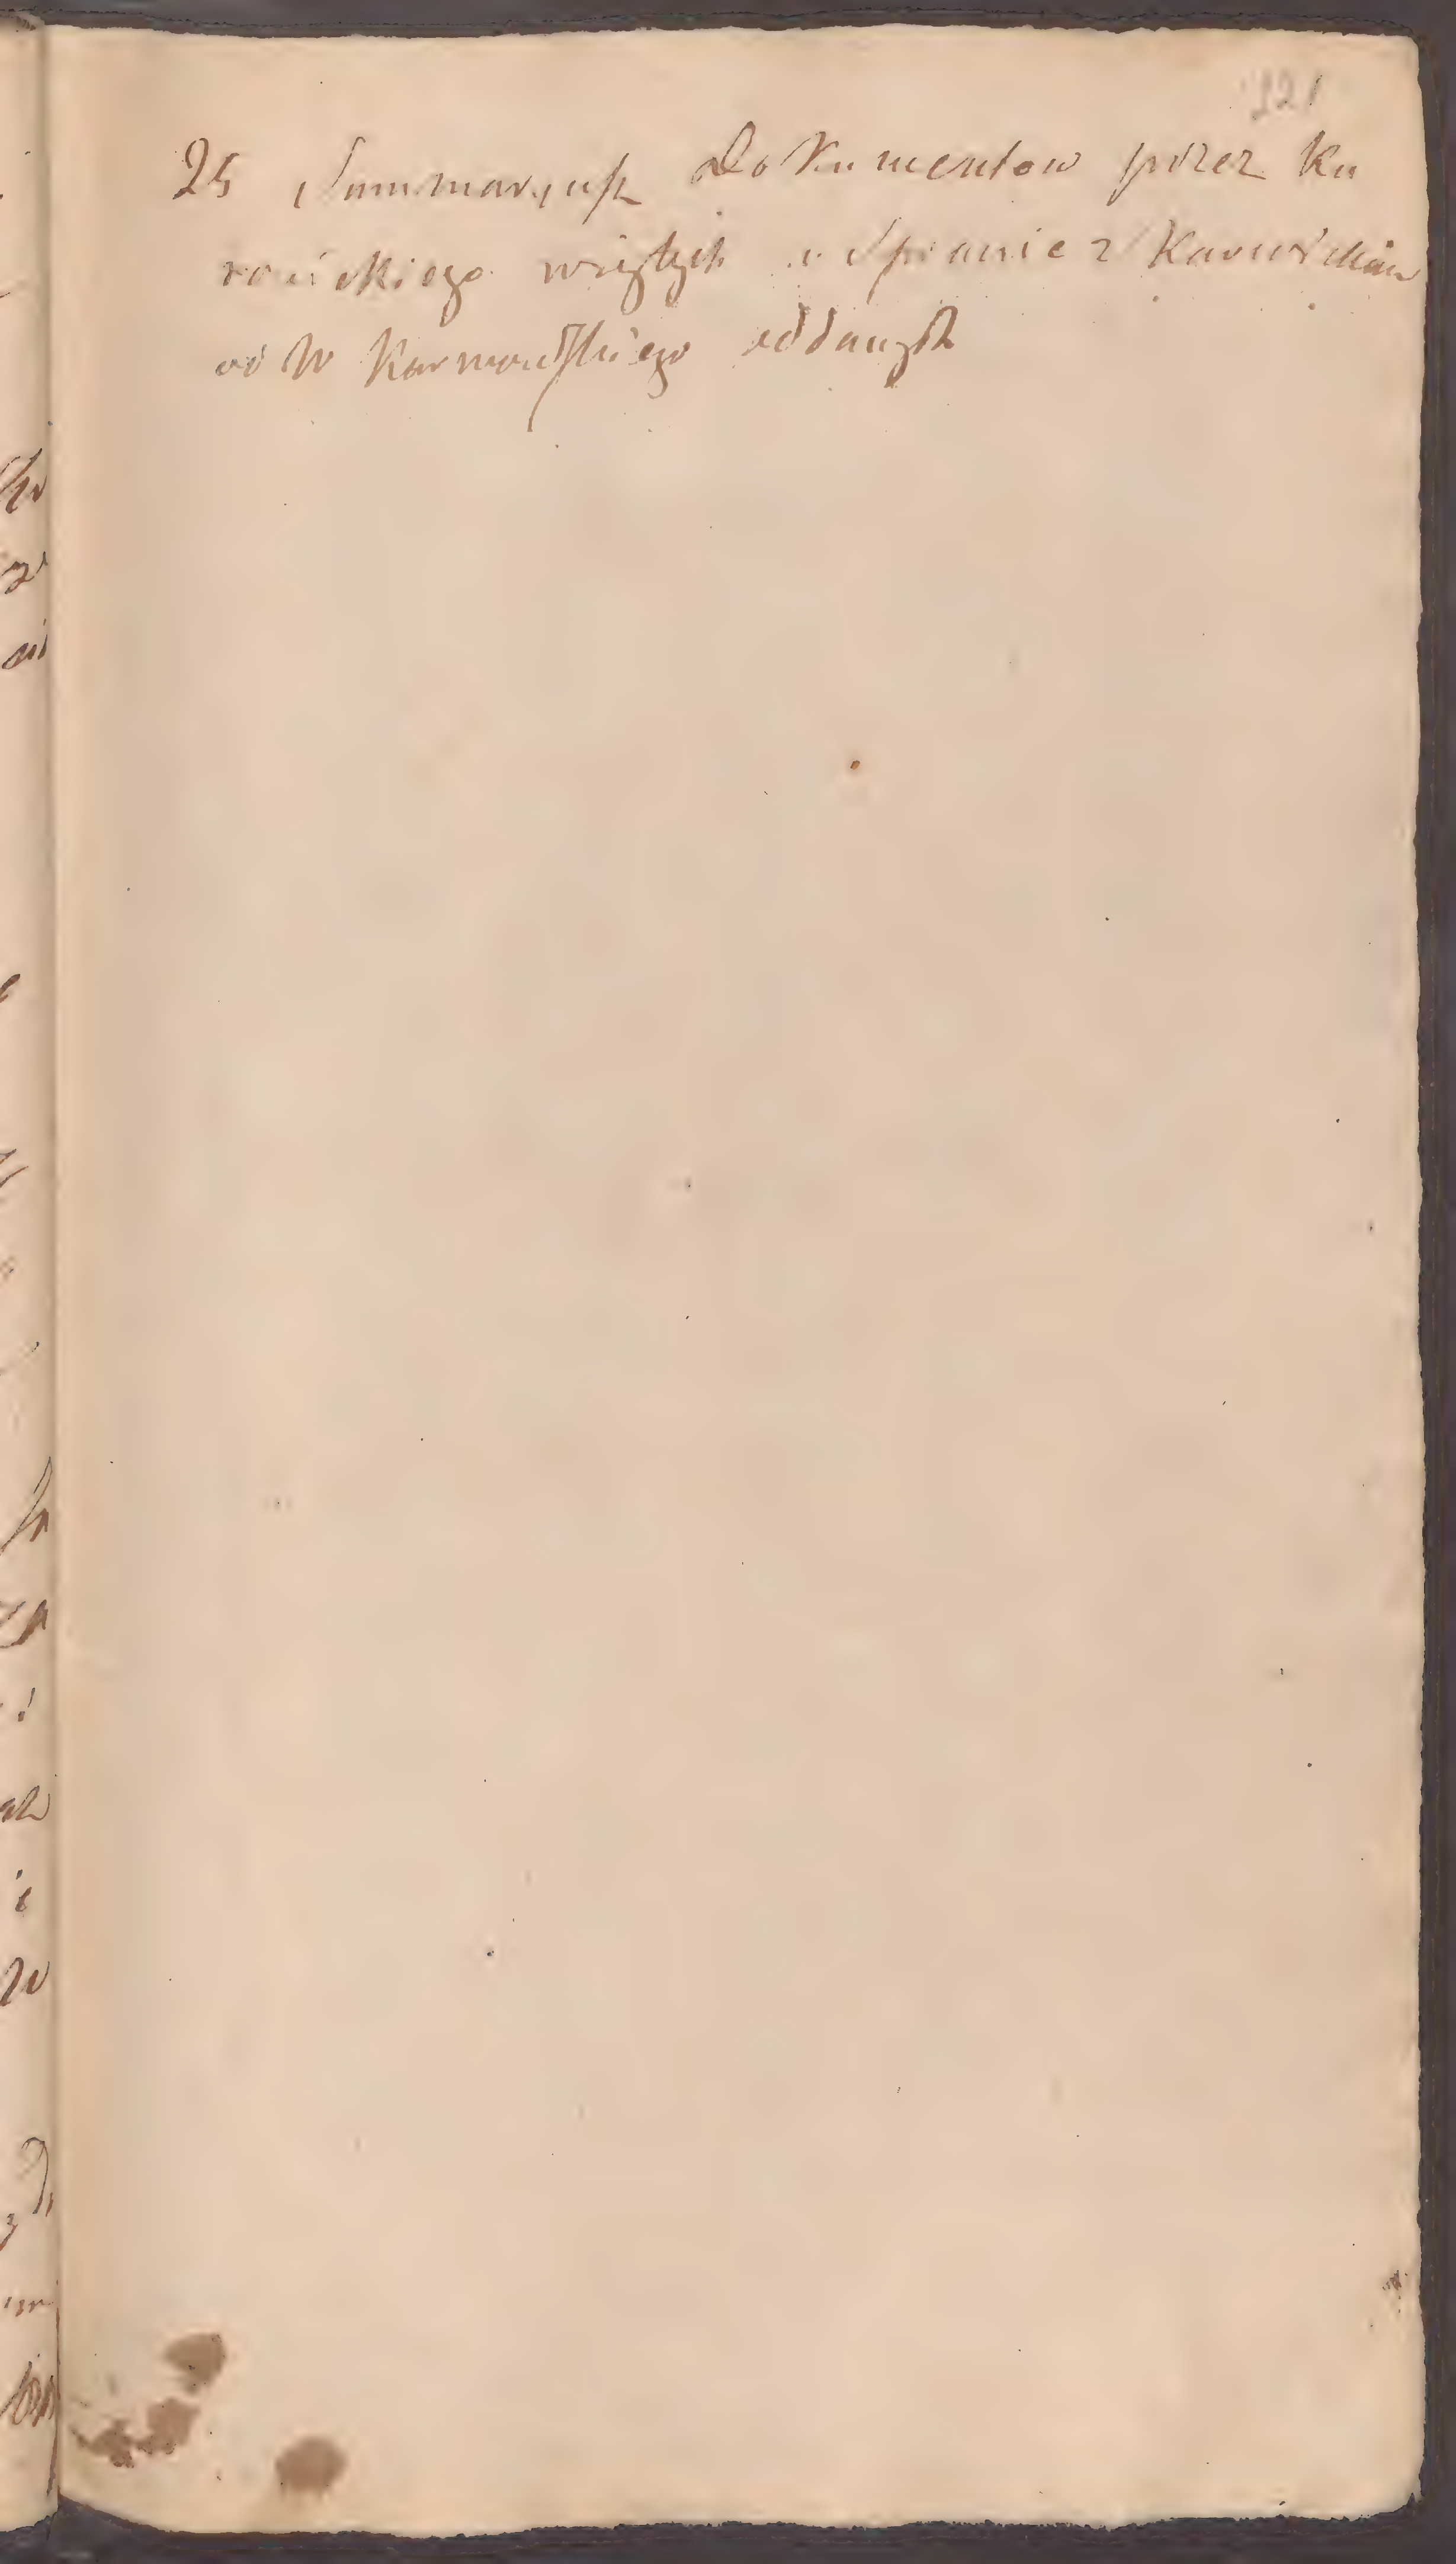 121
25 Summaryusz Dokumentow przez Ku
rowskiego wziętych w Sprawie z Karwickim
od W Karwowskiego oddanych